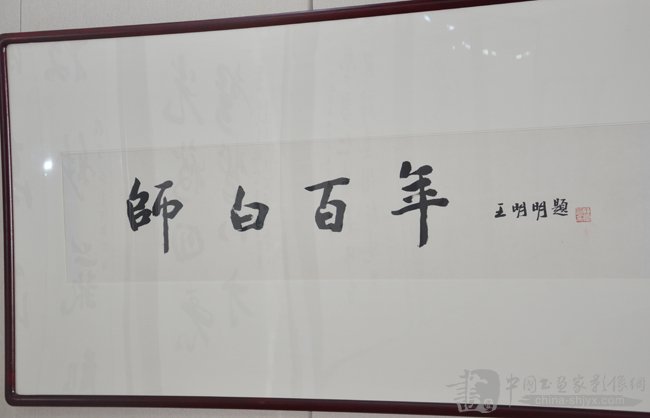 師白百年 王明明題
中国书画家影像网
china-shjyx.com